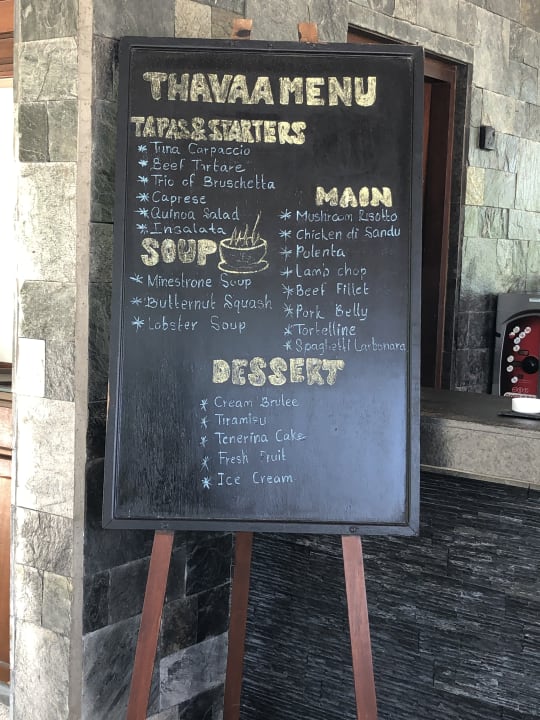 THAVAA MENU
TAPAS & STARTERS
* Tuna Carpaccio
* Beef Tartare
* Trio of Bruschetta
* Caprese
* Quinoa Salad
* Insalata
SOUP
* Minestrone Soup
* Butternut Squash
* Lobster Soup
MAIN
* Mushroom Risotto
* Chicken di Sandu
* Polenta
* Lamb chop
* Beef Fillet
* Pork Belly
* Tortelline
* Spaghetti Carbonara
DESSERT
* Cream Brulee
* Tiramisu
* Tenerina Cake
* Fresh Fruit
* Ice Cream